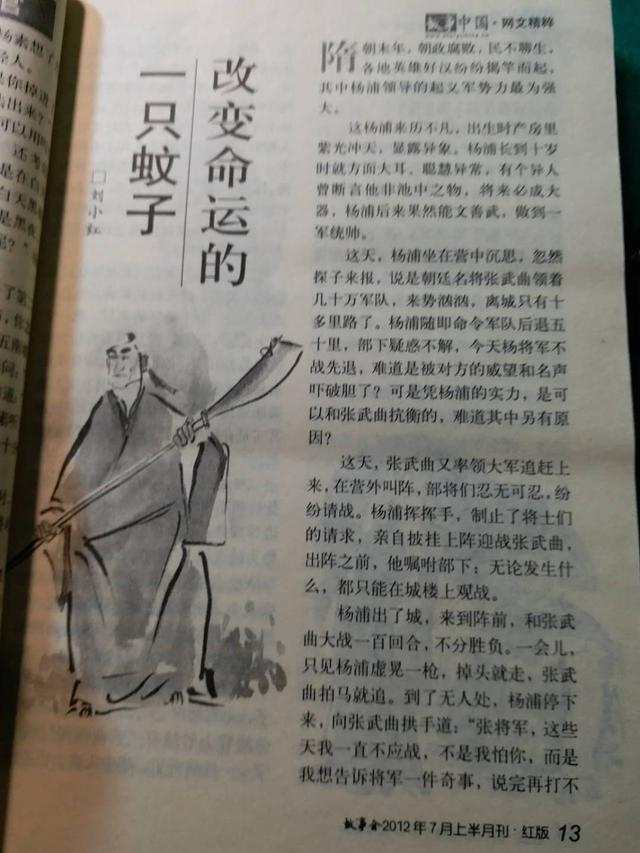 中国·网文精粹
改变命运的
一只蚊子
□刘小红
隋朝末年，朝政腐败，民不聊生，
各地英雄好汉纷纷揭竿而起，
其中杨浦领导的起义军势力最为强
大。
这杨浦来历不凡，出生时产房里
紫光冲天，显露异象。杨浦长到十岁
时就方面大耳、聪慧异常，有个异人
曾断言他非池中之物，将来必成大
器，杨浦后来果然能文善武，做到一
军统帅。
这天，杨浦坐在营中沉思，忽然
探子来报，说是朝廷名将张武曲领着
几十万军队，来势汹汹，离城只有十
多里路了。杨浦随即命令军队后退五
十里，部下疑惑不解，今天杨将军不
战先退，难道是被对方的威望和名声
吓破胆了？可是凭杨浦的实力，是可
以和张武曲抗衡的，难道其中另有原
因？
这天，张武曲又率领大军追赶上
来，在营外叫阵，部将们忍无可忍，纷
纷请战。杨浦挥挥手，制止了将士们
的请求，亲自披挂上阵迎战张武曲，
出阵之前，他嘱咐部下：无论发生什
么，都只能在城楼上观战。
杨浦出了城，来到阵前，和张武
曲大战一百回合，不分胜负。一会儿，
只见杨浦虚晃一枪，掉头就走，张武
曲拍马就追。到了无人处，杨浦停下
来，向张武曲拱手道：“张将军，这些
天我一直不应战，不是我怕你，而是
我想告诉将军一件奇事，说完再打不
故事会·2012年7月上半月刊·红版 13